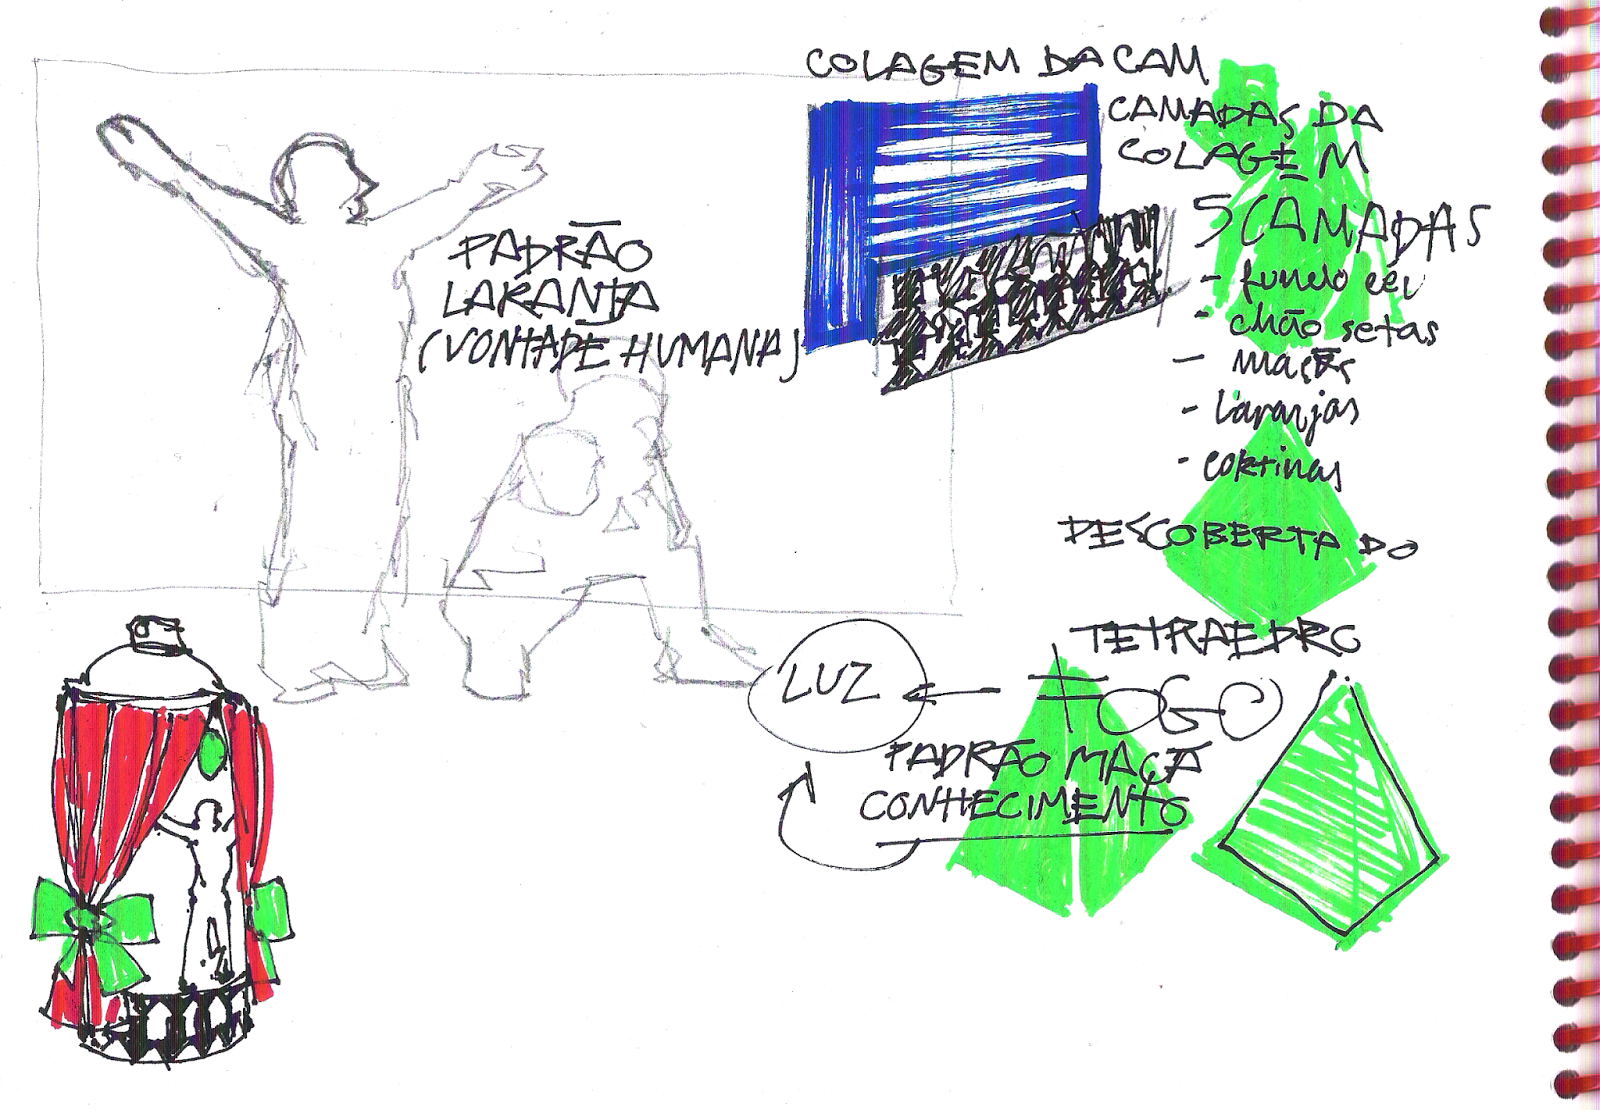 COLAGEM DA CAM
CAMADAS DA
COLAGEM
5 CAMADAS
- fundo céu
- chão setas
- maçãs
- laranjas
- cortinas
PADRÃO
LARANJA
(VONTADE HUMANA)
DESCOBERTA DO
TETRAEDRO
LUZ ← FOGO
PADRÃO MAÇÃ
CONHECIMENTO